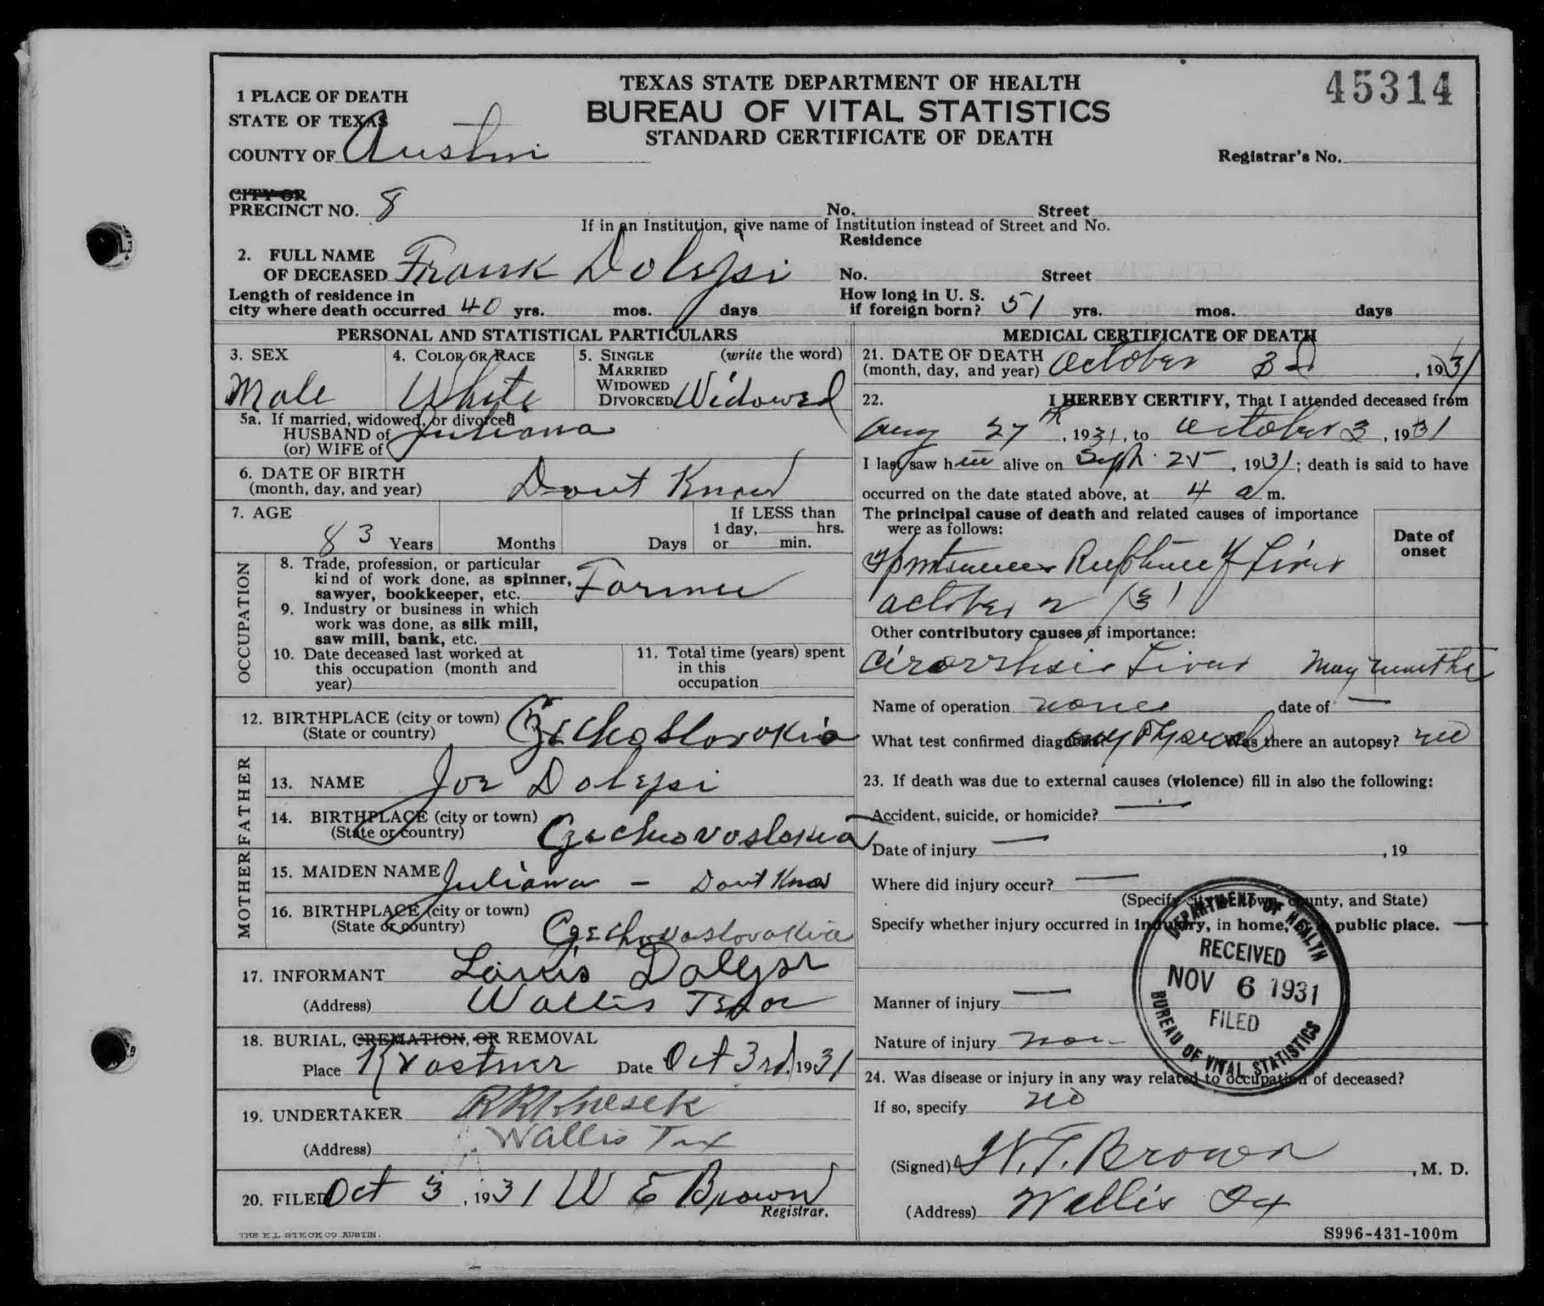 45314
TEXAS STATE DEPARTMENT OF HEALTH
BUREAU OF VITAL STATISTICS
STANDARD CERTIFICATE OF DEATH
1 PLACE OF DEATH
STATE OF TEXAS
COUNTY OF Austin
Registrar's No.
CITY OR
PRECINCT NO. 8 No. Street
If in an Institution, give name of Institution instead of Street and No.
Residence
2. FULL NAME
OF DECEASED Frank Dolejsi No. Street
Length of residence in
city where death occurred 40 yrs. mos. days
How long in U. S.
if foreign born? 51 yrs. mos. days
PERSONAL AND STATISTICAL PARTICULARS
3. SEX
Male
4. COLOR OR RACE
White
5. SINGLE (write the word)
MARRIED
WIDOWED
DIVORCED Widowed
5a. If married, widowed, or divorced
HUSBAND of Juliana
(or) WIFE of
6. DATE OF BIRTH
(month, day, and year) Dont Know
7. AGE
83 Years Months Days
If LESS than
1 day, hrs.
or min.
OCCUPATION
8. Trade, profession, or particular
kind of work done, as spinner,
sawyer, bookkeeper, etc. Farmer
9. Industry or business in which
work was done, as silk mill,
saw mill, bank, etc.
10. Date deceased last worked at
this occupation (month and
year)
11. Total time (years) spent
in this
occupation
12. BIRTHPLACE (city or town)
(State or country) Czechoslovakia
FATHER
13. NAME Joe Dolejsi
14. BIRTHPLACE (city or town)
(State or country) Czechovoslokia
MOTHER
15. MAIDEN NAME Juliana – Dont Know
16. BIRTHPLACE (city or town)
(State or country) Czechovoslovakia
17. INFORMANT Louis Dolejsi
(Address) Wallis Texas
18. BURIAL, CREMATION, OR REMOVAL
Place Date Oct 3rd, 1931
19. UNDERTAKER
(Address) Wallis Tex
20. FILED Oct 3, 1931 W E Brown
Registrar.
THE E.L. STECK CO. AUSTIN.
MEDICAL CERTIFICATE OF DEATH
21. DATE OF DEATH
(month, day, and year) October 3rd, 1931
22. I HEREBY CERTIFY, That I attended deceased from
Aug 27th, 1931, to October 3, 1931
I last saw him alive on Sept. 25, 1931; death is said to have
occurred on the date stated above, at 4 a m.
The principal cause of death and related causes of importance
were as follows:
Date of
onset
Liver
October 2 / 31
Other contributory causes of importance:
Liver many months
Name of operation none date of —
What test confirmed diagnosis? Was there an autopsy? no
23. If death was due to external causes (violence) fill in also the following:
Accident, suicide, or homicide? —
Date of injury — , 19
Where did injury occur? —
(Specify city or town, county, and State)
Specify whether injury occurred in industry, in home, or in public place. —
Manner of injury —
Nature of injury
24. Was disease or injury in any way related to occupation of deceased?
If so, specify no
(Signed) W. T. Brown, M. D.
(Address) Wallis Tx
S996-431-100m
DEPARTMENT OF HEALTH
RECEIVED
NOV 6 1931
FILED
BUREAU OF VITAL STATISTICS